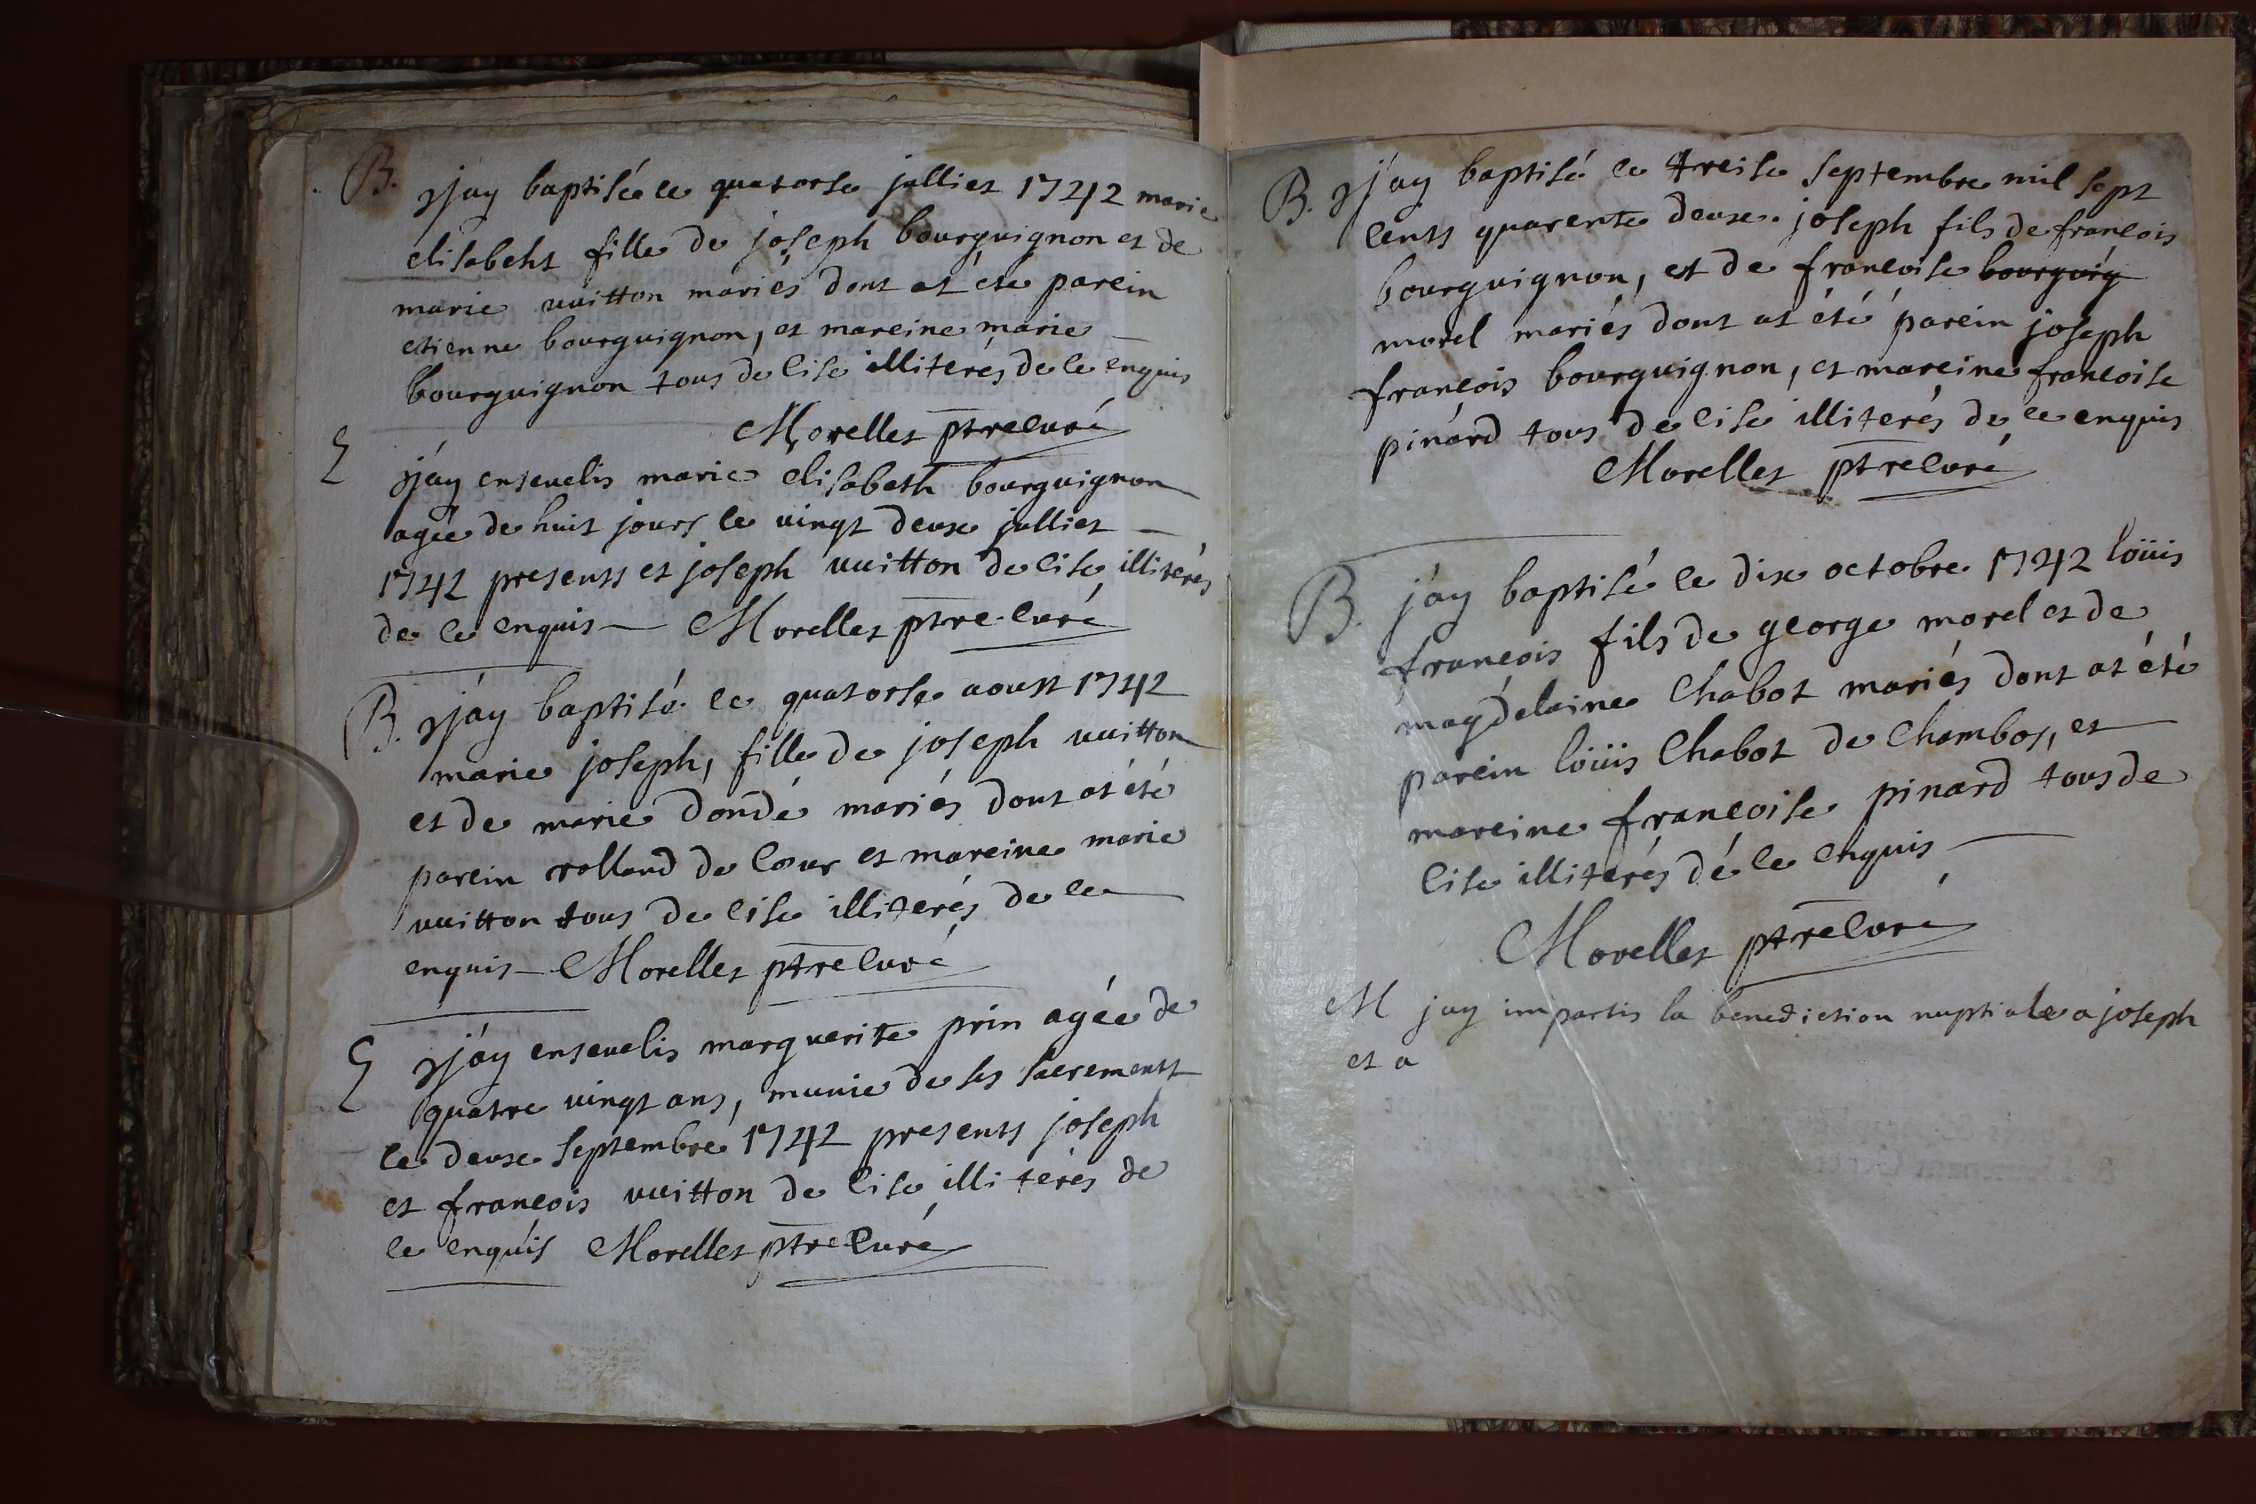 B. jjay baptisée le quatorse julliet 1742 marie
elisabeht fille de joseph bourguignon et de
marie vuitton mariés dont at été parein
etienne bourguignon, et mareine marie
bourguignon tous de cise illiterés de ce enquis
Morellet ptre curé
E jjay ensevelis marie elisabeth bourguignon
agée de huit jours le vingt deuxe julliet
1742 presents et joseph vuitton de cise illiterés
de ce enquis Morellet ptre curé
B. jjay baptisé le quatorse aoust 1742
marie joseph, fille de joseph vuitton
et de marie dondé mariés dont at été
parein rolland de cour et mareine marie
vuitton tous de cise illiterés de ce
enquis Morellet ptre curé
E jjay ensevelis marguerite prin agée de
quatre vingt ans, munie de ses sacrements
le deuxe septembre 1742 presents joseph
et francois vuitton de cise illiterés de
ce enquis Morellet ptre curé
B. jjay baptisé le treise septembre mil sept
cents quarente deuxe joseph fils de francois
bourguignon, et de francoise bourguig
morel mariés dont at été parein joseph
francois bourguignon, et mareine francoise
pinard tous de cise illiterés de ce enquis
Morellet ptre curé
B. jay baptisé le dix octobre 1742 loüis
francois fils de george morel et de
magdelaine Chabot mariés dont at été
parein loüis Chabot de Chambos, et
mareine francoise pinard tous de
cise illiterés de ce enquis
Morellet ptre curé
M jay impartis la benediction nuptiale a joseph
et a